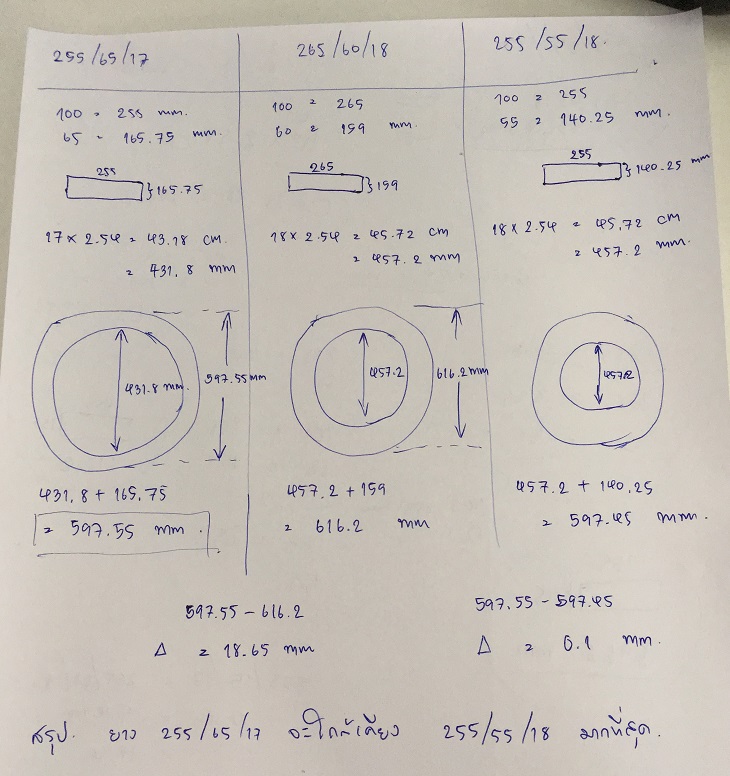 255/65/17
100 = 255 mm.
65 = 165.75 mm.
255
165.75
17 x 2.54 = 43.18 cm.
= 431.8 mm
431.8 mm.
597.55 mm
431.8 + 165.75
= 597.55 mm.
265/60/18
100 = 265
60 = 159 mm.
265
159
18 x 2.54 = 45.72 cm
= 457.2 mm
457.2
616.2 mm
457.2 + 159
= 616.2 mm
255/55/18.
100 = 255
55 = 140.25 mm.
255
140.25 mm
18 x 2.54 = 45.72 cm
= 457.2 mm.
457.2
457.2 + 140.25
= 597.45 mm.
597.55 - 616.2
Δ = 18.65 mm
597.55 - 597.45
Δ = 0.1 mm.
สรุป. ยาง 255/65/17 จะใกล้เคียง 255/55/18 มากที่สุด.